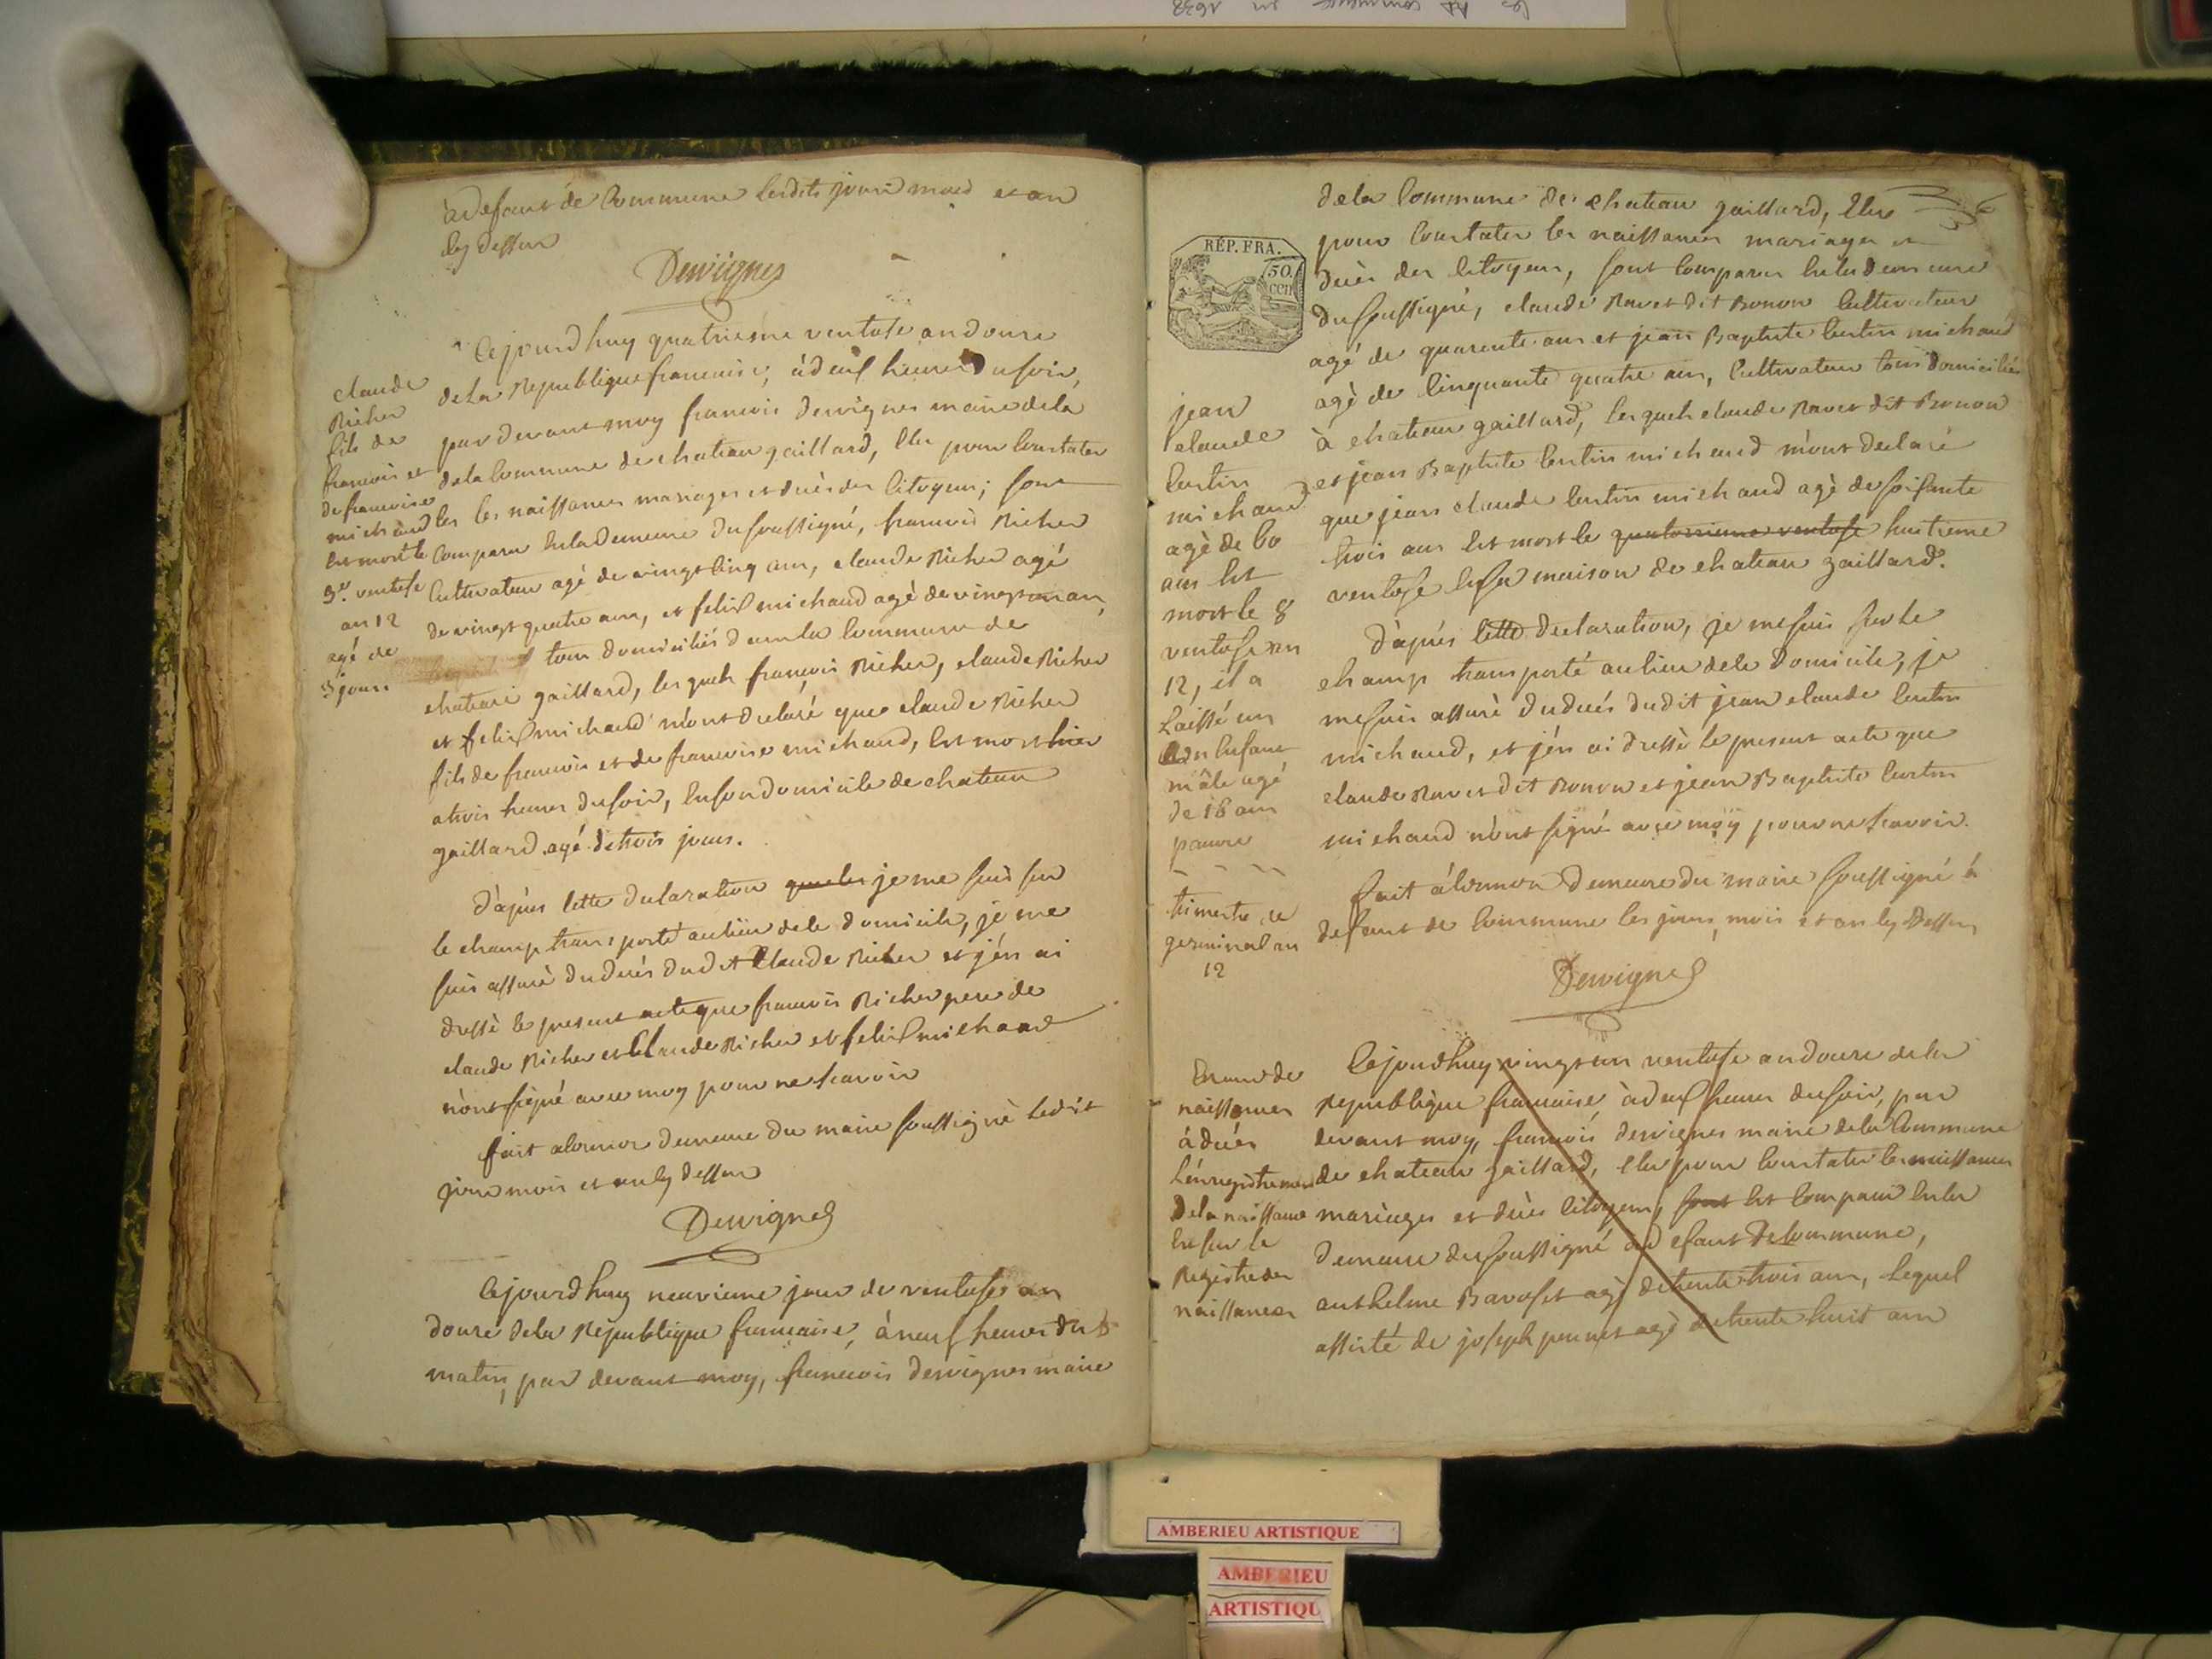 à defaut de Commune lesdits jours mois et an
Cy dessus
Dervignes
Cejourdhuy quatrieme ventose an douze
de la Republique francaise, à deux heures du soir,
par devant moy francois dervignes maire dela
dela Commune de chateau gaillard, Elu pour Constater
les les naissances mariages et décès des Citoyens; sont
Comparu En la Demeure du soussigné, francois Richer
Cultivateur agé de vingt Cinq ans, claude Richer agé
de vingt quatre ans, et felix michaud agè de vingt un an,
tous domiciliés dans la Commune de
chateau gaillard, les quels françois Richer, claude Richer
et felix michaud m'ont declaré que claude Richer
fils de francois et de francoise michaud, Est mort hier
a trois heures du soir, En son domicile de chateau
gaillard agé de trois jours.
D'après Cette declaration je me suis sur
le champ transporté au lieu de le domicile, je me
suis assuré du décés dudit Claude Richer et j'én ai
dressè le present acte que francois Richer pere de
claude Richer et Claude Richer et felix michaud
n'ont signé avec moy pour ne scavoir
fait alor Demeure du maire soussignè ledit
jour mois et an Cy dessus
Dervignes
Cejourdhuy neuvieme jour de ventose an
douze dela Republique francaise, à neuf heures du
matin, par devant moy, francois dervignes maire
claude
Richer
fils de
francois et
de francoise
michaud
Est mort le
3e. ventose
an 12
agé de
3 jours
dela Commune de chateau gaillard, Elu
pour Constater les naissances mariages et
décès des Citoyens, sont Comparus En la demeure
du soussigné, claude Ravet dit Bonon Cultivateur
agé de quarente ans et jean Baptiste Curtin michaud
agè de Cinquante quatre ans, Cultivateur tous domiciliés
à chateau gaillard, les quels claude Ravet dit Bonon
et jean Baptiste Curtin michaud m'ont declaré
que jean claude Curtin michaud agè de soixante
trois ans Est mort le quatorzieme ventose huitieme
ventose En sa maison de chateau gaillard.
D'après Cette declaration, je me suis sur le
champ transporté au lieu dele domicile, je
me suis assurè du décés dudit jean claude Curtin
michaud, et j'én ai dressè le present acte que
claude Ravet dit Bonon et jean Baptiste Curtin
michaud n'ont signé avec moy pour ne scavoir.
fait à Demeure du maire soussigné à
defaut de Commune les jour, mois et an Cy Dessus
Dervignes
Cejourdhuy vingt un ventose an douze dela
Republique francaise, à deux heures du soir, par
devant moy, francois dervignes maire dela Commune
de chateau gaillard, Elu pour Constater les naissances
mariages et décès Citoyens, sont Est Comparu En la
Demeure du soussigné au defaut de Commune,
anthelme agé de trente trois ans, lequel
assisté de joseph agè de trente huit ans
RÉP. FRA.
50.
cen
jean
claude
Curtin
michaud
agè de 60
ans Est
mort le 8
ventose an
12, il a
Laissé un
Enfant
mâle agé
de 18 ans
pauvre
trimestre de
germinal an
12
Erreur de
naissances
à décés
L'énregistrement
De la naissance
Est sur le
Registre des
naissances
AMBERIEU ARTISTIQUE
AMBERIEU
ARTISTIQU